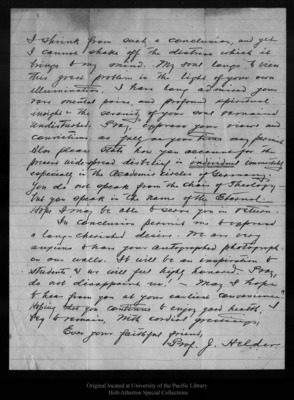 I shrink from such a conclusion, and yet
I cannot shake off the distress which it
brings to my mind. My soul longs to view
this great problem in the light of your own
illumination. I have long admired your
rare mental poise, and profound spiritual
insight – the serenity of your soul
understands. Pray, express your views and
conviction as fully as you
Also please state how you account for the
present widespread disbelief in individual immortality
especially in the Academic circles of Germany.
You do not speak from the chair of Theology –
but you speak in the name of the Eternal.
Hope I may be able to serve you in return.
In conclusion permit me to express
a long cherished desire. We are very
anxious to have your autographed photograph
on our walls. It will be an inspiration to
students & we will feel highly honored – Pray,
do not disappoint us! – May I hope
to hear from you at your earliest convenience?
Hoping that you continue to enjoy good health, I
beg to remain, With cordial greetings,
Ever your faithful friend,
Prof. J. Helder.
Original located at University of the Pacific Library
Holt-Atherton Special Collections